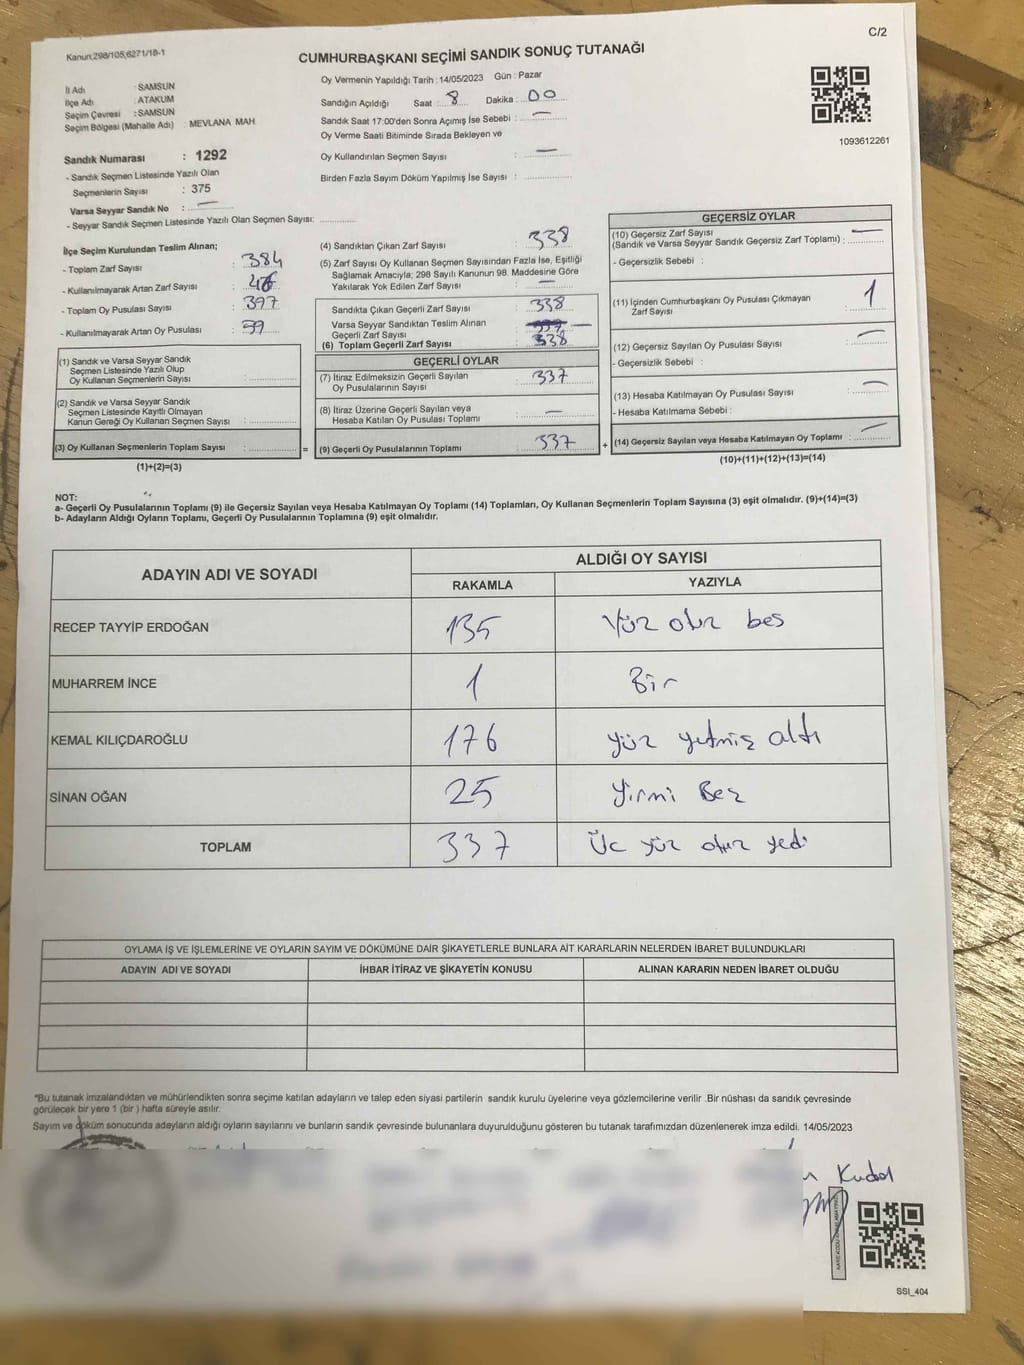 C/2
Kanun,298/105,6271/18-1
CUMHURBAŞKANI SEÇİMİ SANDIK SONUÇ TUTANAĞI
İl Adı : SAMSUN
İlçe Adı : ATAKUM
Seçim Çevresi : SAMSUN
Seçim Bölgesi (Mahalle Adı) : MEVLANA MAH
Oy Vermenin Yapıldığı Tarih : 14/05/2023 Gün : Pazar
Sandığın Açıldığı Saat : 8 Dakika : 00
Sandık Saat 17:00'den Sonra Açımış İse Sebebi : —
Oy Verme Saati Bitiminde Sırada Bekleyen ve
Oy Kullandırılan Seçmen Sayısı : —
Birden Fazla Sayım Döküm Yapılmış İse Sayısı :
1093612261
Sandık Numarası : 1292
- Sandık Seçmen Listesinde Yazılı Olan
Seçmenlerin Sayısı : 375
Varsa Seyyar Sandık No : —
- Seyyar Sandık Seçmen Listesinde Yazılı Olan Seçmen Sayısı:
İlçe Seçim Kurulundan Teslim Alınan;
- Toplam Zarf Sayısı : 384
- Kullanılmayarak Artan Zarf Sayısı :
- Toplam Oy Pusulası Sayısı : 397
- Kullanılmayarak Artan Oy Pusulası :
(1) Sandık ve Varsa Seyyar Sandık
Seçmen Listesinde Yazılı Olup
Oy Kullanan Seçmenlerin Sayısı :
(2) Sandık ve Varsa Seyyar Sandık
Seçmen Listesinde Kayıtlı Olmayan
Kanun Gereği Oy Kullanan Seçmen Sayısı :
(3) Oy Kullanan Seçmenlerin Toplam Sayısı :
(1)+(2)=(3)
(4) Sandıktan Çıkan Zarf Sayısı : 338
(5) Zarf Sayısı Oy Kullanan Seçmen Sayısından Fazla İse, Eşitliği
Sağlamak Amacıyla; 298 Sayılı Kanunun 98. Maddesine Göre
Yakılarak Yok Edilen Zarf Sayısı : —
Sandıkta Çıkan Geçerli Zarf Sayısı : 338
Varsa Seyyar Sandıktan Teslim Alınan
Geçerli Zarf Sayısı : —
(6) Toplam Geçerli Zarf Sayısı : 338
GEÇERLİ OYLAR
(7) İtiraz Edilmeksizin Geçerli Sayılan
Oy Pusulalarının Sayısı : 337
(8) İtiraz Üzerine Geçerli Sayılan veya
Hesaba Katılan Oy Pusulası Toplamı : —
= (9) Geçerli Oy Pusulalarının Toplamı : 337 +
GEÇERSİZ OYLAR
(10) Geçersiz Zarf Sayısı
(Sandık ve Varsa Seyyar Sandık Geçersiz Zarf Toplamı) : —
- Geçersizlik Sebebi :
(11) İçinden Cumhurbaşkanı Oy Pusulası Çıkmayan
Zarf Sayısı : 1
(12) Geçersiz Sayılan Oy Pusulası Sayısı : —
- Geçersizlik Sebebi :
(13) Hesaba Katılmayan Oy Pusulası Sayısı : —
- Hesaba Katılmama Sebebi :
(14) Geçersiz Sayılan veya Hesaba Katılmayan Oy Toplamı : —
(10)+(11)+(12)+(13)=(14)
NOT:
a- Geçerli Oy Pusulalarının Toplamı (9) ile Geçersiz Sayılan veya Hesaba Katılmayan Oy Toplamı (14) Toplamları, Oy Kullanan Seçmenlerin Toplam Sayısına (3) eşit olmalıdır. (9)+(14)=(3)
b- Adayların Aldığı Oyların Toplamı, Geçerli Oy Pusulalarının Toplamına (9) eşit olmalıdır.
ADAYIN ADI VE SOYADI ALDIĞI OY SAYISI
RAKAMLA YAZIYLA
RECEP TAYYİP ERDOĞAN 135 Yüz otuz beş
MUHARREM İNCE 1 Bir
KEMAL KILIÇDAROĞLU 176 yüz yetmiş altı
SİNAN OĞAN 25 Yirmi Beş
TOPLAM 337 Üç yüz otuz yedi
OYLAMA İŞ VE İŞLEMLERİNE VE OYLARIN SAYIM VE DÖKÜMÜNE DAİR ŞİKAYETLERLE BUNLARA AİT KARARLARIN NELERDEN İBARET BULUNDUKLARI
ADAYIN ADI VE SOYADI İHBAR İTİRAZ VE ŞİKAYETİN KONUSU ALINAN KARARIN NEDEN İBARET OLDUĞU
"Bu tutanak imzalandıktan ve mühürlendikten sonra seçime katılan adayların ve talep eden siyasi partilerin sandık kurulu üyelerine veya gözlemcilerine verilir .Bir nüshası da sandık çevresinde
görülecek bir yere 1 (bir ) hafta süreyle asılır.
Sayım ve döküm sonucunda adayların aldığı oyların sayılarını ve bunların sandık çevresinde bulunanlara duyurulduğunu gösteren bu tutanak tarafımızdan düzenlenerek imza edildi. 14/05/2023
SSI_404